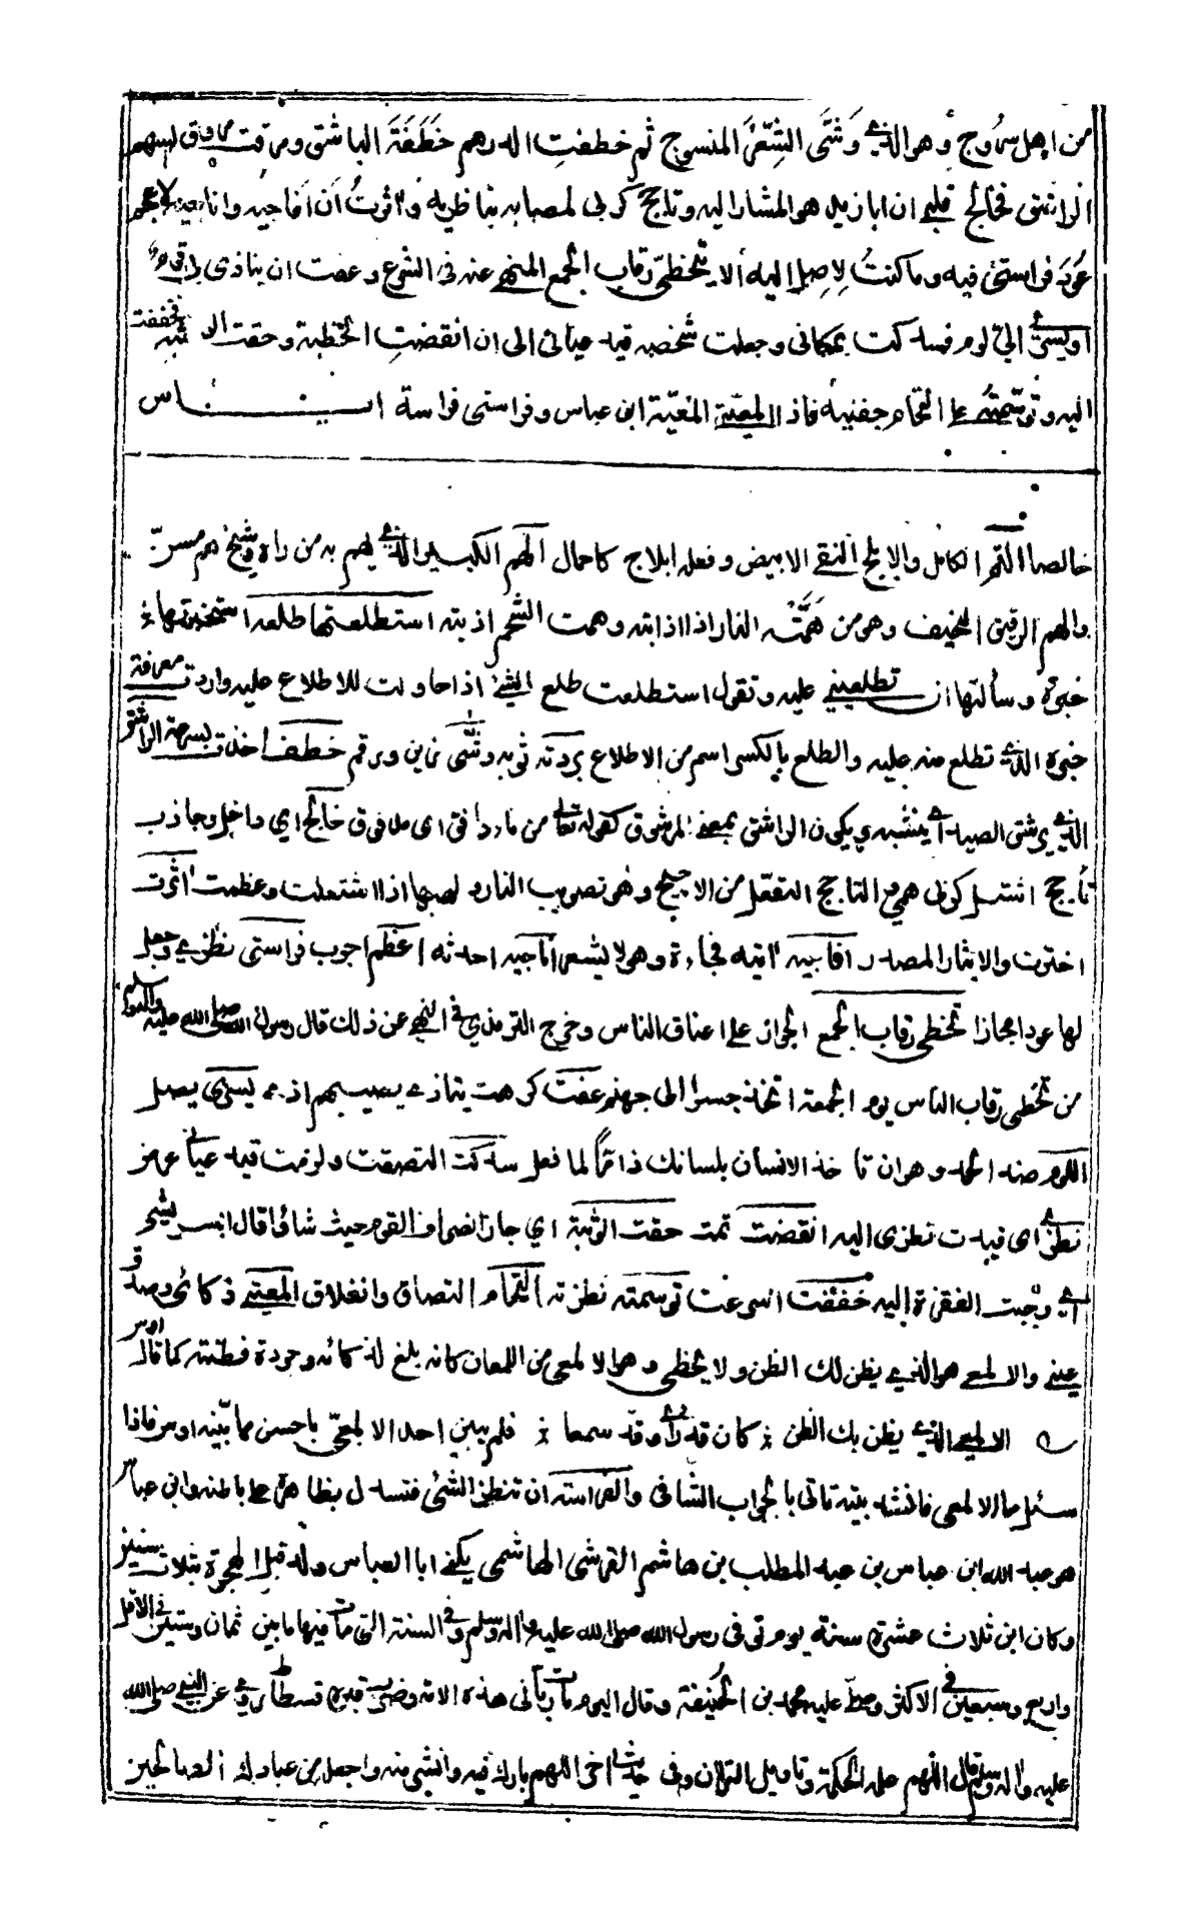 من اهل سروج وهو الذي وَشَّى الشِّعْرَ المنسوج ثم خطفتِ الدرهم خَطْفَةَ الباشق ومرقت مروق السهم
الراشق فخالج قلبي ان ابا زيد هو المشار اليه وتاجج كربي لمصابه بناظريه واثرتُ ان افاجيه واناجيه لاعجم
عُودَ فراستي فيه وما كنتُ لِاصِل اليه الا بتخطي رقاب الجمع المنهي عنه في الشرع وعفت ان يتاذى بي قوم
او يسري اليّ لوم فسدكت بمكاني وجعلت شخصه قيد عياني الى ان انقضتِ الخطبة وحقت الوثبة فخففت
اليه وتوسّمتُه على التحام جفنيه فاذا المعيّتي المعيّة ابن عباس وفراستي فراسة ايـــاس
خالصا التم الكامل والابلج النقي الابيض وفعله ابلاج كاحمال الهم الكبير الذي يهم به من راه وشيخ هم مسنّ
والهم الرقيق الخفيف وهو من هَمَّتْه النار اذا اذابته وهمت الشحم اذبته استطلعتها طلعه استخبرتها
خبره وسألتها ان تطلعيني عليه وتقول استطلعت طلع الشيء اذا حاولت للاطلاع عليه واردت معرفة
خبره الذي تطلع منه عليه والطلع بالكسر اسم من الاطلاع بردته ثوبه وشّى زين ورقم خطف اخذت بسرعة الراشق
الذي يرشق الصيد اي ينشبه ويكون الراشق بمعنى المرشوق كقوله تعالى من ماء دافق اي مدفوق خالج اي داخل وجاذب
تأجج اشتعل كربي همي التاجج التفعل من الاجيج وهو تصويت النار ولهبها اذا اشتعلت وعظمت اثرت
اخترت والايثار المصدر افاجيه اتيه فجاءة وهو لا يشعر اناجيه احدثه اعجم اجرب فراستي نظري وجعل
لها عودا مجازا تخطي رقاب الجمع الجواز على اعناق الناس وخرج الترمذي في النهي عن ذلك قال رسول الله صلى الله عليه واله وسلم
من تخطى رقاب الناس يوم الجمعة اتخذ جسرا الى جهنم عفت كرهت يتاذى يصيبهم اذى يسري يصل
اللوم ضد الحمد وهو ان تاخذ الانسان بلسانك ذامّا لما فعل سدكت التصقت ولزمت قيد عياني عرض
نظري اي قيدت نظري اليه انقضت تمت حقت الوثبة اي جاز انصراف القوم حيث شاؤا قال ابن
اي وجبت القفزة اليه خففت اسرعت توسمته نظرته التحام التصاق وانغلاق المعيتي ذكائي وصدق
عيني والالمعي هو الذي يظن لك الظن ولا يخطي وهو الالمعي من اللمعان كانه بلغ له ذكائه وجودة فطنته كما قال اوس
الالمعي الذي يظن بك الظن ؞ كان قد رأى وقد سمعا ؞ فلم يبين احد الالمعيّ باحسن مما بيّنه اوس فاذا
سئل ما الالمعي فانشد بيته تاتي بالجواب الشافي والفراسة ان تنظر الشئ فتستدل بظاهره على باطنه وابن عباس
هو عبد الله ابن عباس بن عبد المطلب بن هاشم القرشي الهاشمي يكنى ابا العباس ولد قبل الهجرة بثلاث سنين
وكان ابن ثلاث عشرة سنة يوم توفي رسول الله صلى الله عليه واله وسلم وفي السنة التي مات فيها ما بين ثمان وستين في الاقل
واربع وسبعين في الاكثر وصلّى عليه محمد بن الحنيفة وقال اليوم مات رباني هذه الامة وضرب على قبره فسطاط وروي عن النبي صلى الله
عليه واله وسلم قال اللهم علمه الحكمة وتاويل القران وفي حديث اخر اللهم بارك فيه وانشر منه واجعله من عبادك الصالحين